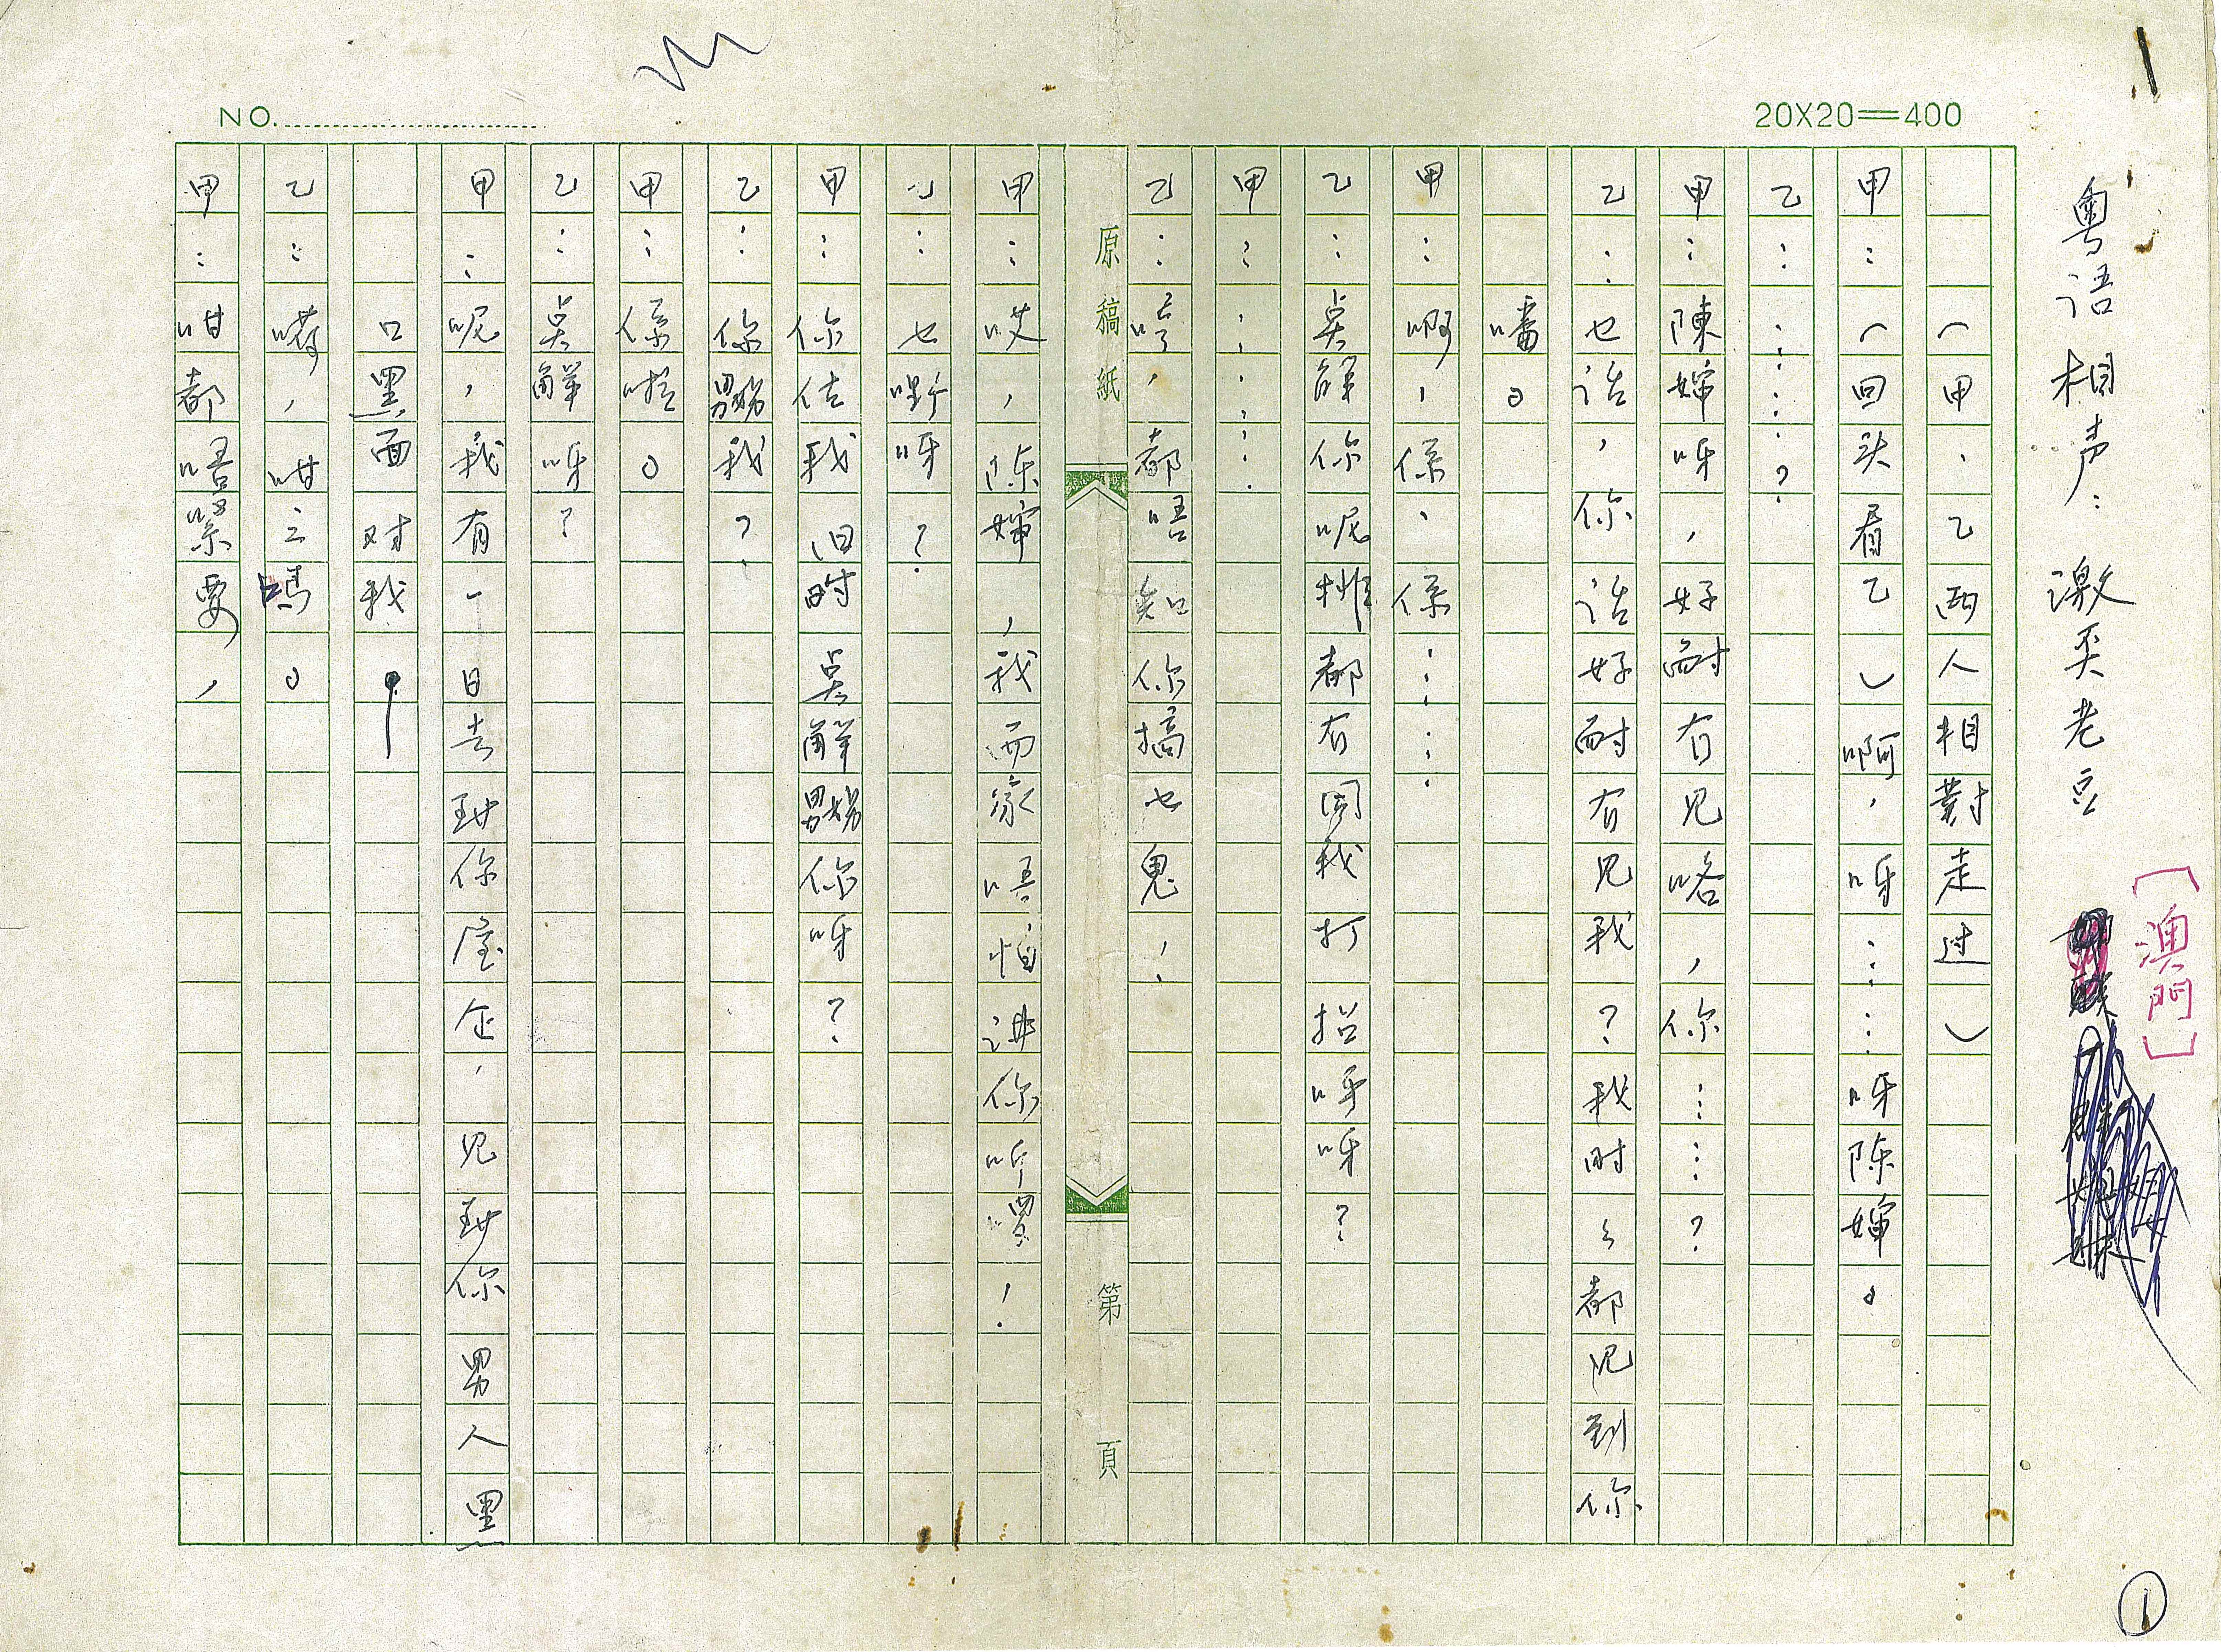 粤语相声：激奀老豆
［澳門］
NO.
20X20=400
（甲、乙两人相對走过）
甲：（回头看乙）啊，呀……呀陈婶。
乙：……？
甲：陳婶呀，好耐冇见咯，你……？
乙：乜话，你话好耐冇见我？我时々都见到你
噃。
甲：啊，係，係……
乙：点解你呢排都冇同我打招呼呀？
甲：……
乙：哼，都唔知你搞乜鬼！
原稿紙
第 頁
甲：哎，陈婶，我而家唔怕讲你听㗎！
乙：乜嘢呀？
甲：你估我旧时点解嬲你呀？
乙：你嬲我？
甲：係啦。
乙：点解呀？
甲：呢，我有一日去到你屋企，见到你男人黑
口黑面对我，
乙：嗬，咁之嗎。
甲：咁都唔緊要，
①